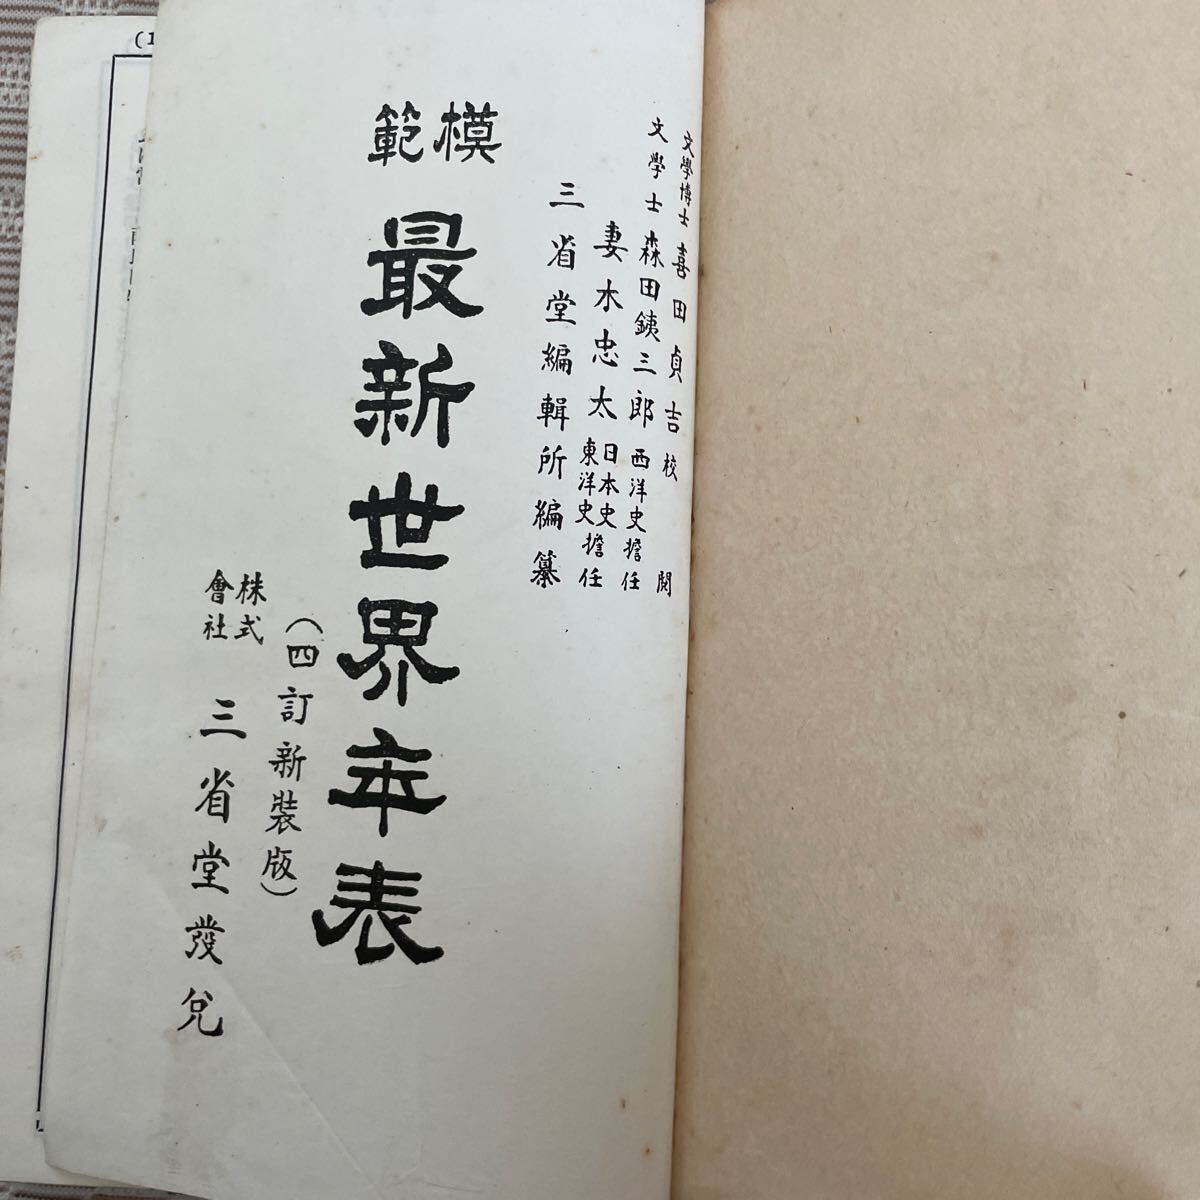 文學博士 喜田貞吉 校閱
文學士 森田鉄三郎 西洋史擔任
妻木忠太 日本史 東洋史擔任
三省堂編輯所編纂
模範
最新世界年表
(四訂新裝版)
株式會社 三省堂發兌
(1